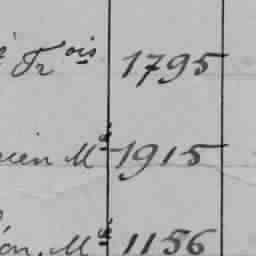 Frois 1795
cien Md 1915
ón, Md 1156